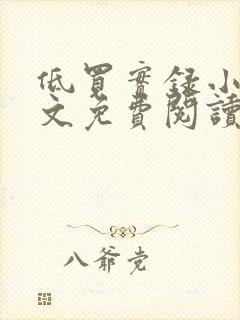 低買實錄小
文免費閱讀
八爺党